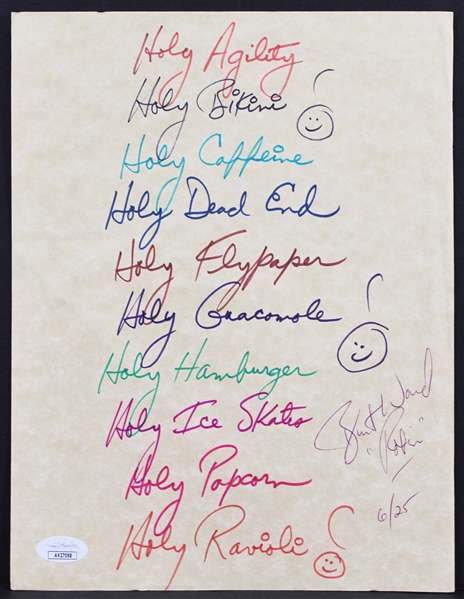 Holy Agility
Holy Bikini!
Holy Caffeine
Holy Dead End
Holy Flypaper
Holy Guacomole!
Holy Hamburger
Holy Ice Skates
Holy Popcorn
Holy Ravioli!
Burt Ward
"Robin"
6/25
JSA